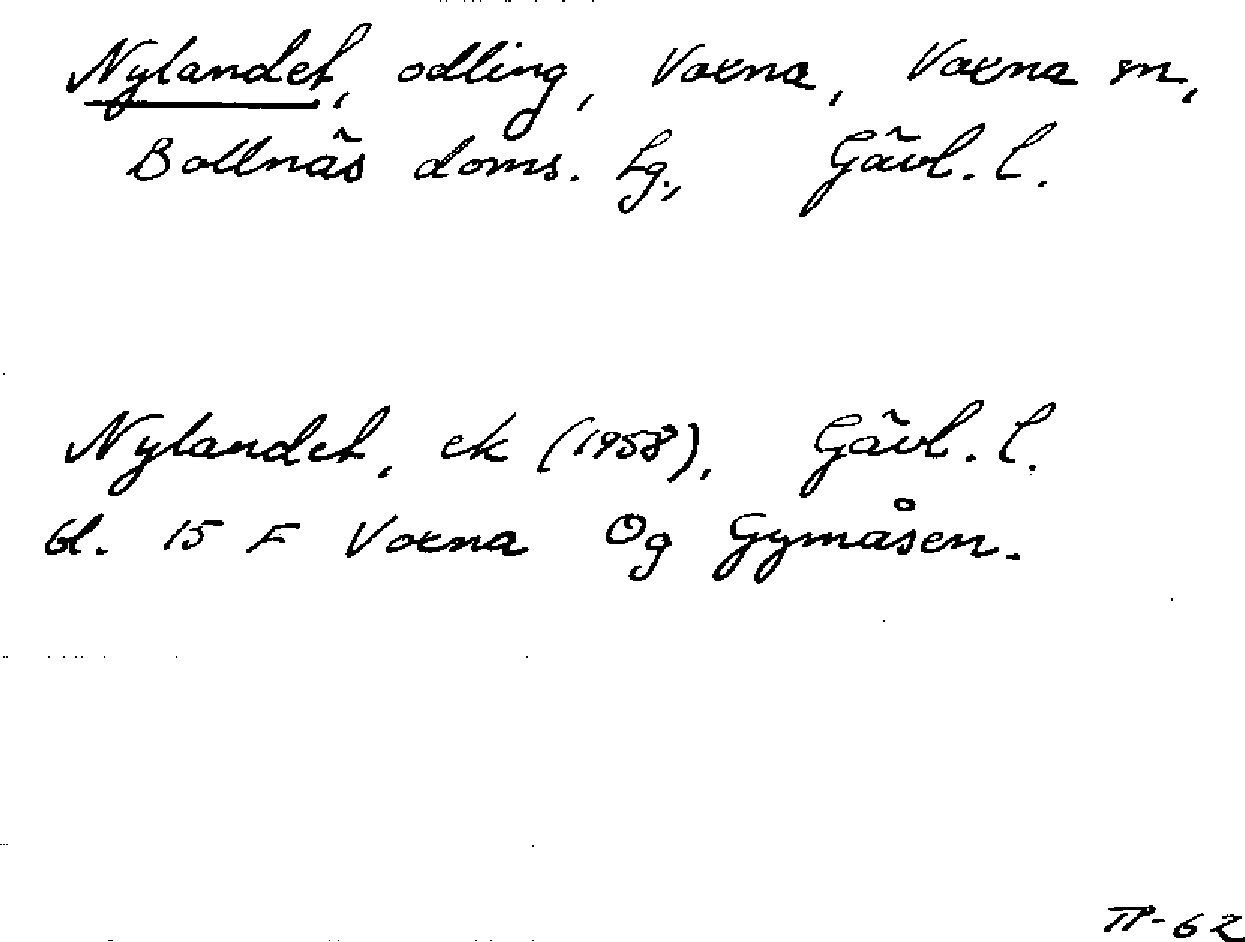 Nylandet, odling, Voxna, Voxna sn,
Bollnäs doms. lg., Gävl. l.
Nylandet, ek (1958), Gävl. l.
bl. 15 F Voxna Og Gymåsen.
TP-62